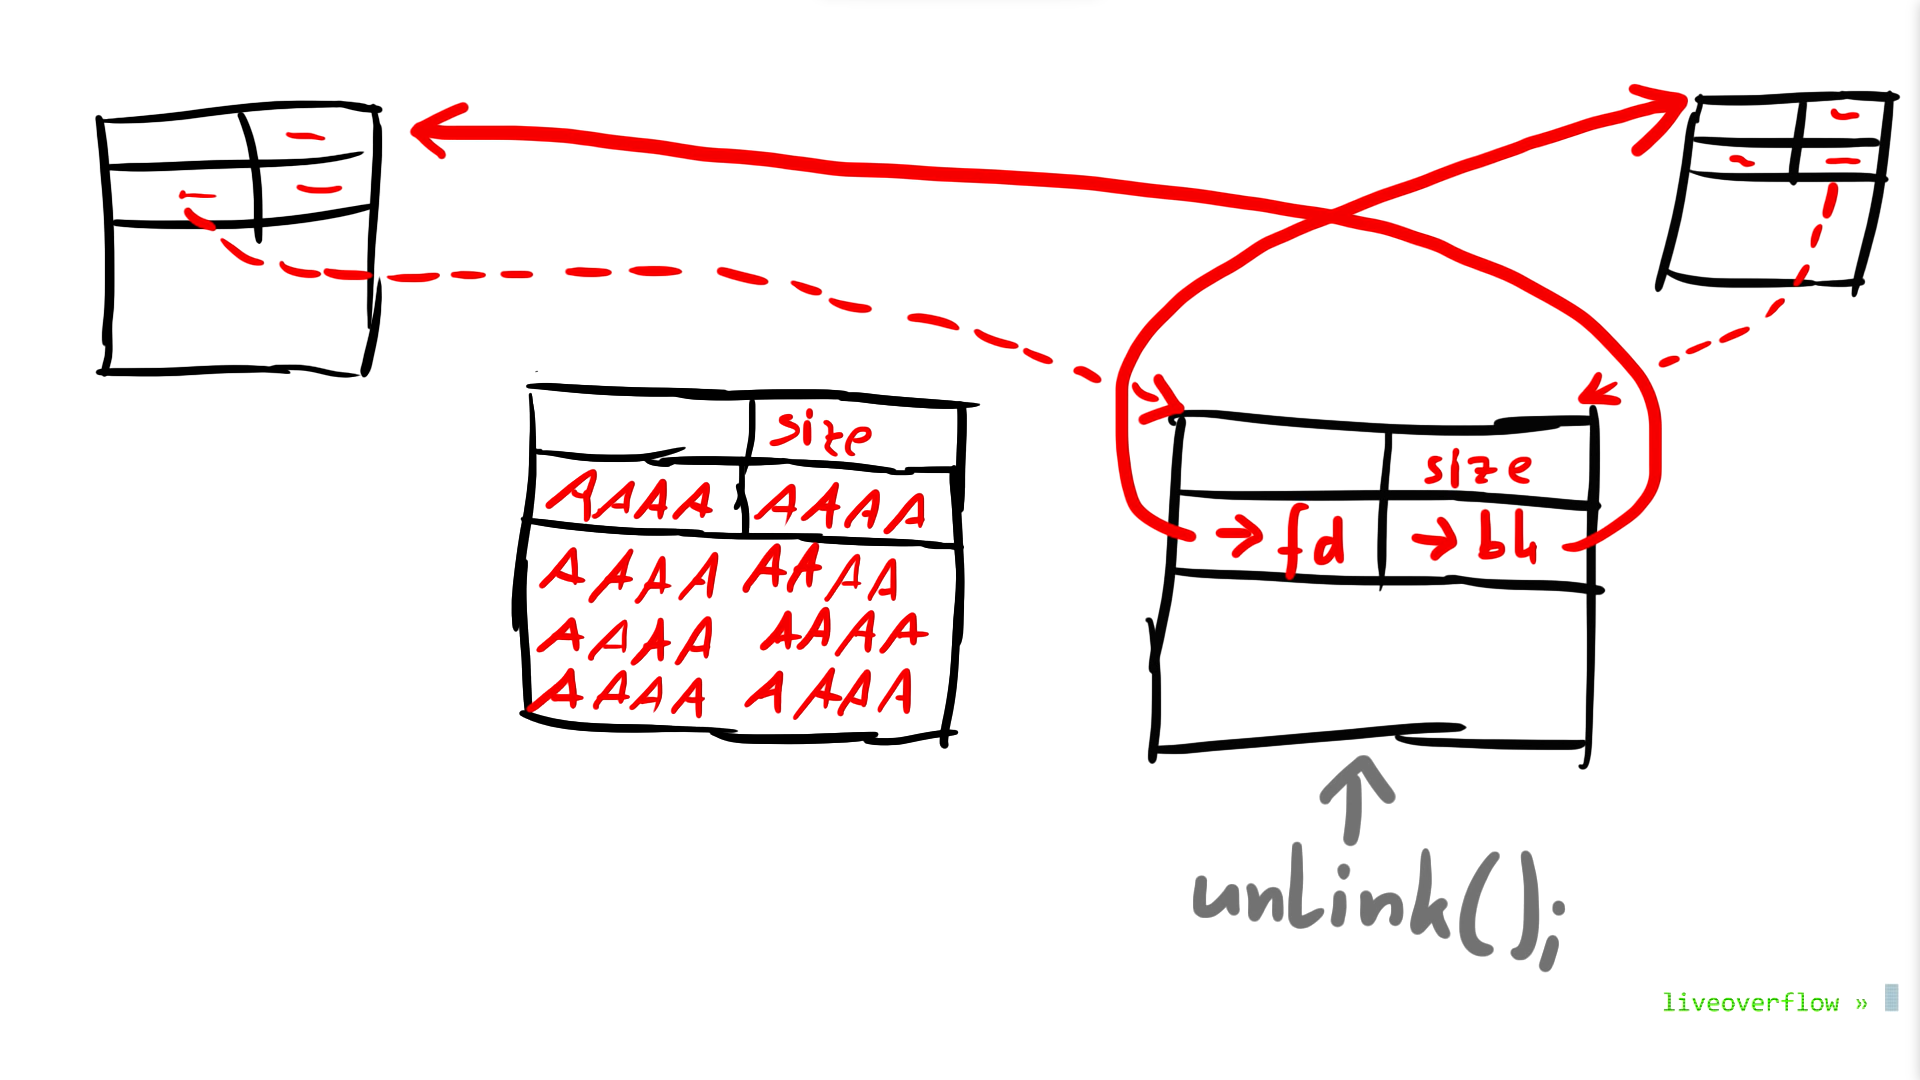 size
AAAA AAAA
AAAA AAAA
AAAA AAAA
AAAA AAAA
size
→ fd → bk
unlink();
liveoverflow »